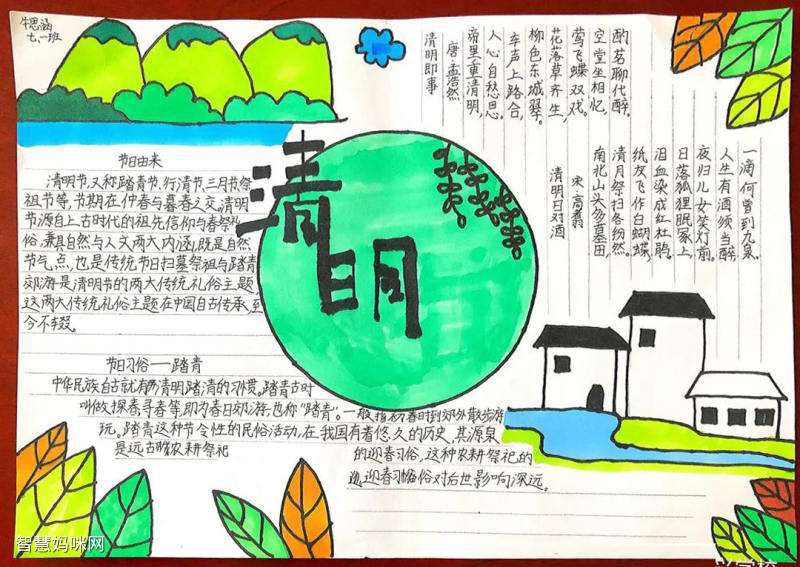 牛思涵
七、一班
清明
节日由来
清明节,又称踏青节、行清节、三月节祭
祖节等,节期在仲春与暮春之交。清明
节源自上古时代的祖先信仰与春祭礼
俗,兼具自然与人文两大内涵,既是自然
节气点,也是传统节日扫墓祭祖与踏青
郊游是清明节的两大传统礼俗主题,
这两大传统礼俗主题在中国自古传承,至
今不辍。
节日习俗——踏青
中华民族自古就有清明踏清的习惯。踏青古时
叫做探春寻春等,即为春日郊游,也称"踏青"。一般指初春时到郊外散步游
玩。踏青这种节令性的民俗活动,在我国有着悠久的历史,其源泉
是远古农耕祭祀
的迎春习俗,这种农耕祭祀的
迎春习俗对后世影响深远。
清明即事
唐 孟浩然
帝里重清明,
人心自愁思。
车声上路合,
柳色东城翠。
花落草齐生,
莺飞蝶双戏。
空堂坐相忆,
酌茗聊代醉。
清明日对酒
宋 高翥
南北山头多墓田,
清明祭扫各纷然。
纸灰飞作白蝴蝶,
泪血染成红杜鹃。
日落狐狸眠冢上,
夜归儿女笑灯前。
人生有酒须当醉,
一滴何曾到九泉。
智慧妈咪网